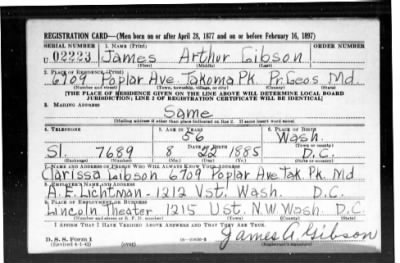 REGISTRATION CARD—(Men born on or after April 28, 1877 and on or before February 16, 1897)
SERIAL NUMBER 1. NAME (Print) ORDER NUMBER
U 02223 James Arthur Gibson
(First) (Middle) (Last)
2. PLACE OF RESIDENCE (Print)
6709 Poplar Ave. Takoma Pk. Pr. Geos. Md.
(Number and street) (Town, township, village, or city) (County) (State)
[THE PLACE OF RESIDENCE GIVEN ON THE LINE ABOVE WILL DETERMINE LOCAL BOARD
JURISDICTION; LINE 2 OF REGISTRATION CERTIFICATE WILL BE IDENTICAL]
3. MAILING ADDRESS
Same
[Mailing address if other than place indicated on line 2. If same insert word same]
4. TELEPHONE 5. AGE IN YEARS 6. PLACE OF BIRTH
56 Wash.
DATE OF BIRTH
Sl. 7689 8 22 1885 D.C.
(Exchange) (Number) (Mo.) (Day) (Yr.)
7. NAME AND ADDRESS OF PERSON WHO WILL ALWAYS KNOW YOUR ADDRESS
Clarissa Gibson 6709 Poplar Ave Tak Pk. Md
8. EMPLOYER'S NAME AND ADDRESS
A. E. Lichtman - 1212 V st. Wash. D.C.
9. PLACE OF EMPLOYMENT OR BUSINESS
Lincoln Theater 1215 U st. N.W Wash. D.C.
(Number and street or R. F. D. number) (Town) (County) (State)
I AFFIRM THAT I HAVE VERIFIED ABOVE ANSWERS AND THAT THEY ARE TRUE.
D. S. S. Form 1
(Revised 4-1-42) (over)
James A Gibson
(Registrant's signature)